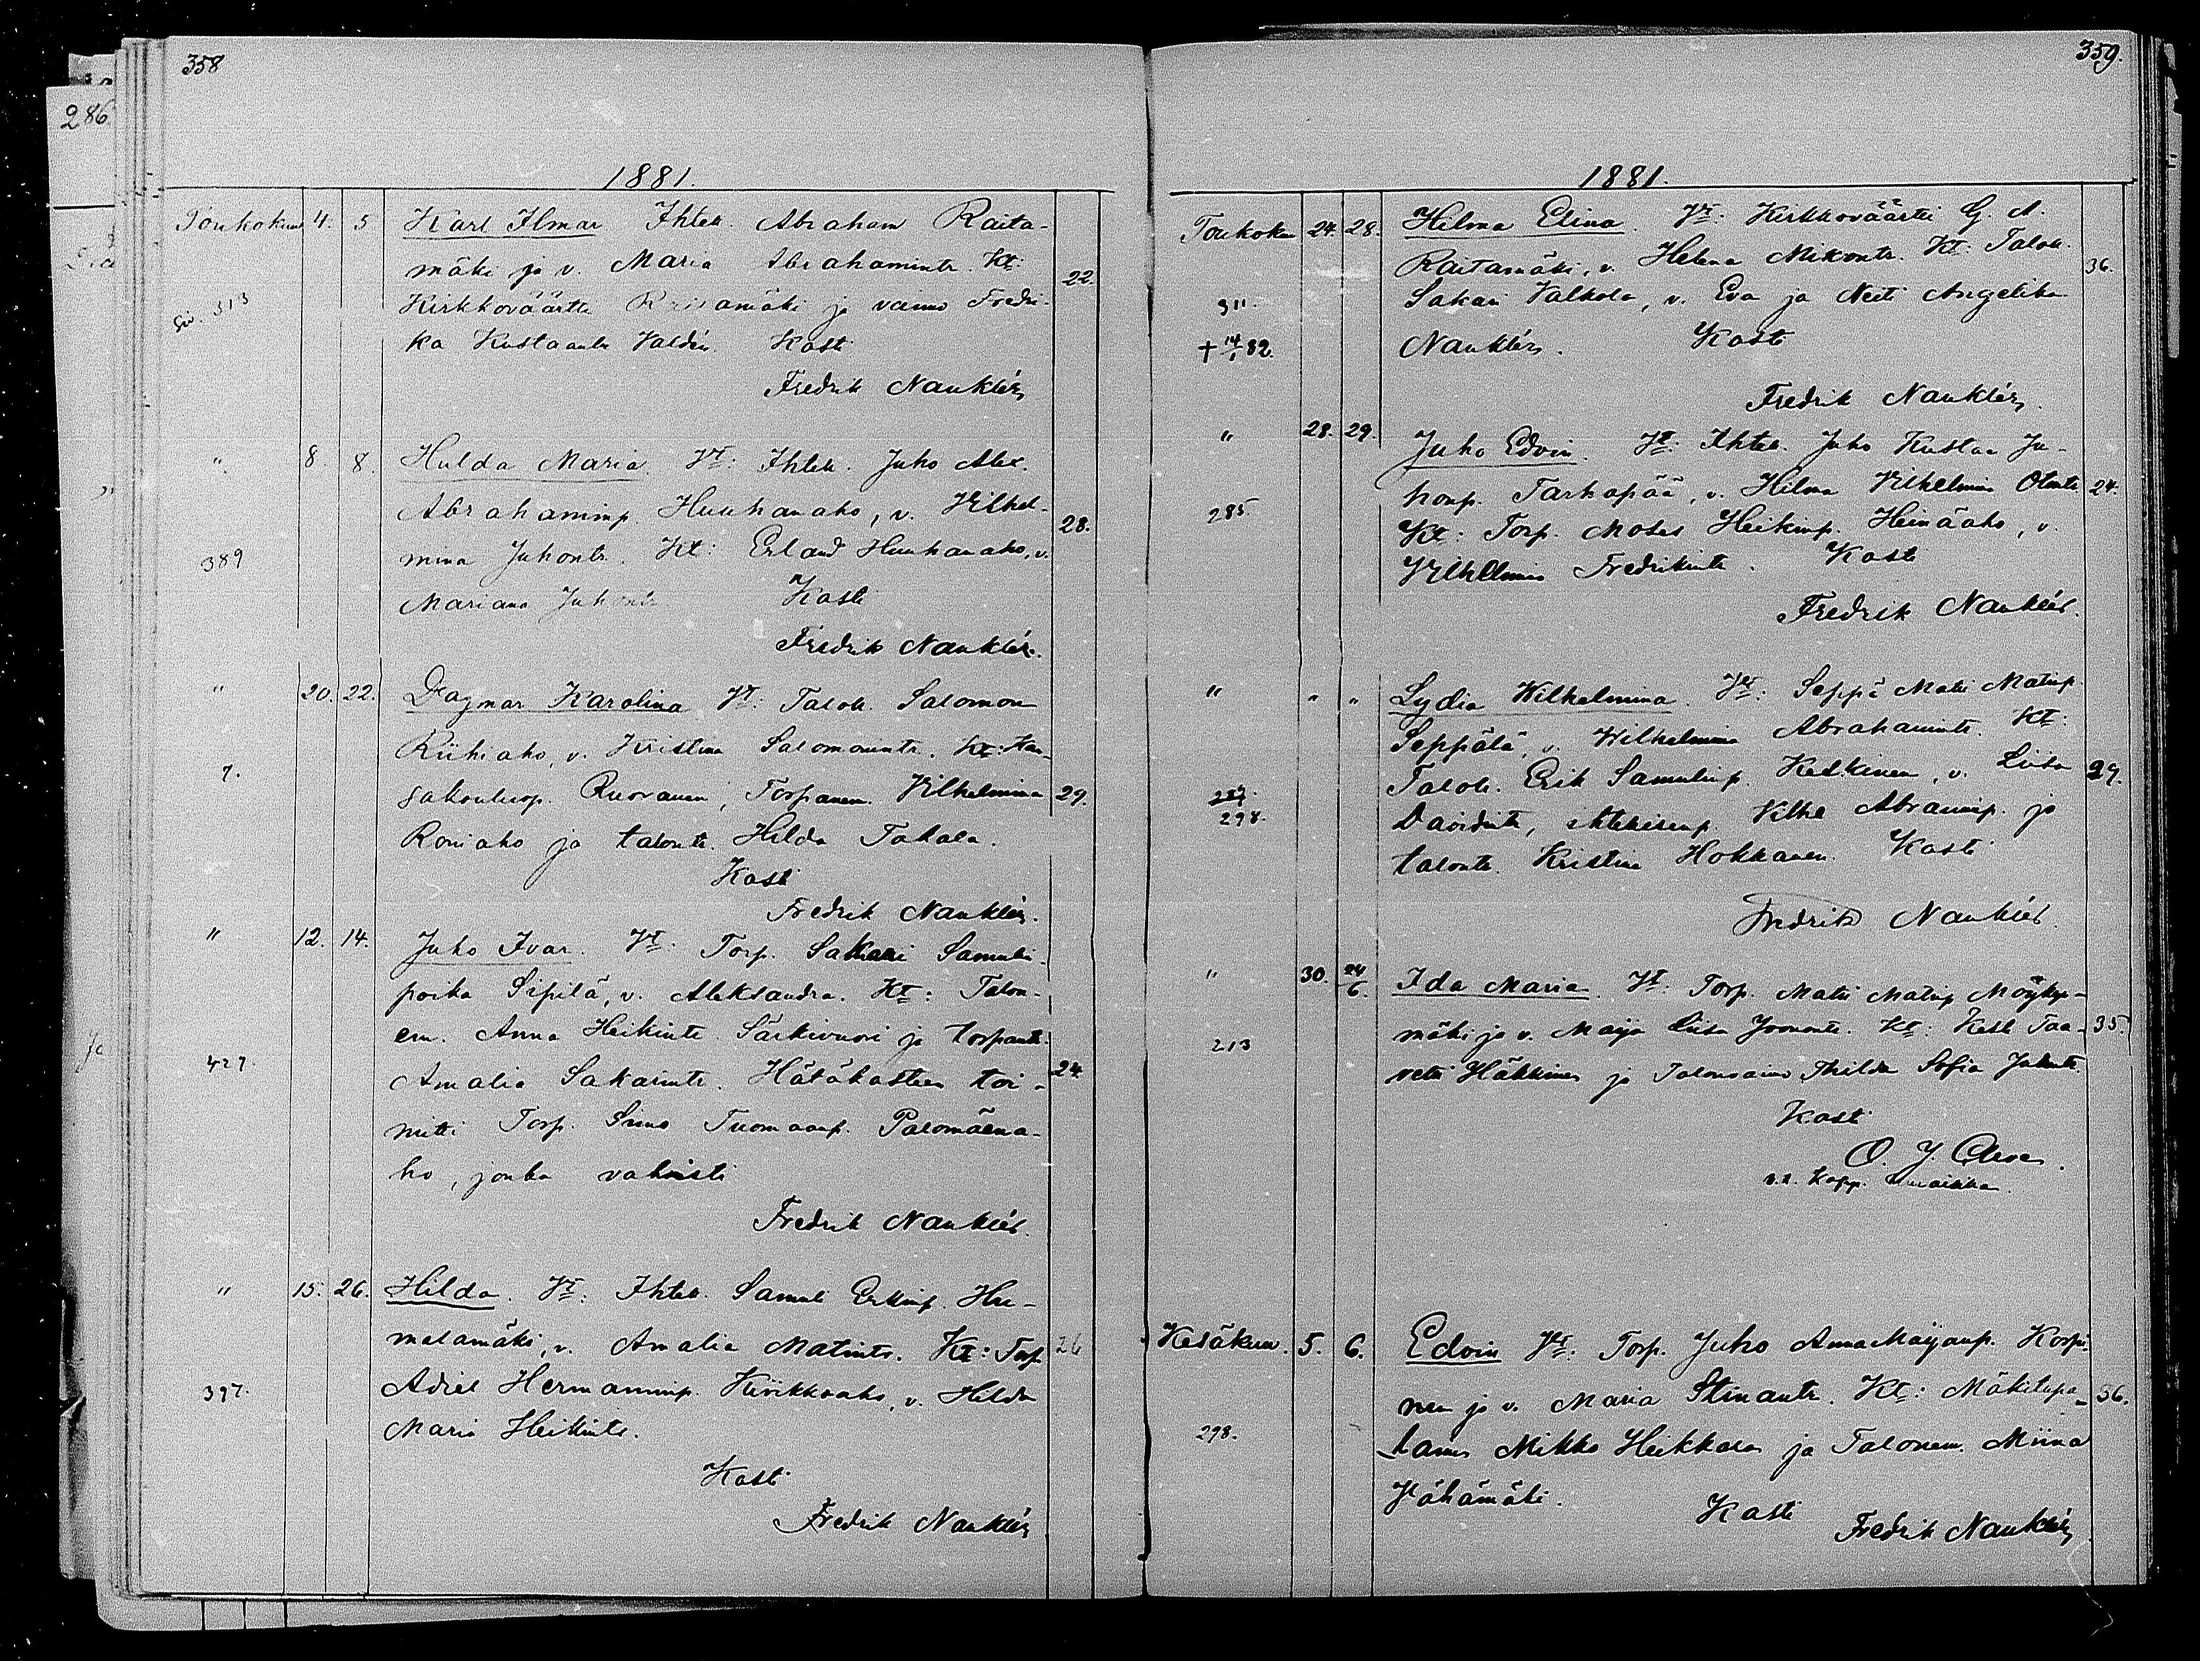 358
286
1881.
Toukokuu 4. 5 Karl Ilmar Ihtell. Abraham Raita-
mäki ja v. Maria Abrahamintr. Kt: 22.
siv. 313 Kirkkoväärtti Raitamäki ja vaimo Fredri-
ka Kustaantr Valdén Kasti
Fredrik Nauklér
" 8. 8. Hulda Maria Vt: Ihtell. Juho Alex.
Abrahaminp. Huuhanaho, v. Vilhel- 28.
389 mina Juhontr. Kt: Erland Huuhanaho, v.
Mariana Juhontr Kasti
Fredrik Nauklér.
" 20. 22. Dagmar Karolina Vt: Taloll. Salomon
Riihiaho, v. Kristina Salomonintr. Kt: Kan-
7. sakoulusop. Ruovanen, Torpanem. Vilhelmina 29.
Roniaho ja talontr. Hilda Takala.
Kasti
Fredrik Nauklér.
" 12. 14. Juho Ivar. Vt: Torp. Sakari Samuli-
poika Sipilä, v. Aleksandra. Kt: Talon-
em. Anna Heikintr Särkivuori ja torpantr.
427. Amalia Sakarintr. Hätäkasteen toi- 24.
mitti Torp. Simo Tuomaanp. Palomäena-
ho, jonka vahvisti
Fredrik Nauklér.
" 15. 26. Hilda. Vt: Ihtell. Samuli Erkinp. Hie-
malamäki, v. Amalia Matintr. Kt: Torp 26
397. Adiel Hermanninp. Kivikkoaho, v. Hilda
Maria Heikintr.
Kasti
Fredrik Nauklér
359.
1881.
Toukoku 24. 28. Hilma Elina. Vt: Kirkkoväärtti G. A.
Raitamäki, v. Helena Mikontr. Kt: Taloll. 36.
311 Sakari Valkola, v. Eva ja Neiti Angelika
† 14/1 82. Nauklér. Kasti
Fredrik Nauklér.
" 28. 29. Juho Edvin. Vt: Ihtell. Juho Kustaa Ju-
honp. Tarhapää, v. Hilma Vilhelmina Otontr 24.
285. Kt: Torp. Moses Heikinp. Heinäaho, v.
Vilhelmina Fredrikintr. Kasti
Fredrik Nauklér.
" " " Lydia Wilhelmina. Vt: Seppä Matti Matinp.
Seppälä, v. Wilhelmina Abrahamintr. Kt:
287. Taloll. Erik Samulinp. Kedkinen, v. Liisa 29.
298. Davidintr, ihtellisenp. Vilhe Abraminp. ja
talontr. Kristina Hokkanen. Kasti
Fredrik Nauklér.
" 30. 24/6. Ida Maria. Vt: Torp. Matti Matinp
mäki ja v. Maija Liisa Joonantr. Kt: Kest Taa- 35.
213 vetti Häkkinen ja Talonvaimo Thilda Sofia Juhontr.
Kasti
O. J. Cleve.
v.t. Kapp.
Kesäkuu. 5. 6. Edvin Vt: Torp. Juho AnnaMaijanp. Korpi-
nen ja v. Maria Stinantr. Kt: Mäkitupa- 36.
298. lainen Mikko Heikkala ja Talonem. Miina
Vähämäki.
Kasti Fredrik Nauklér